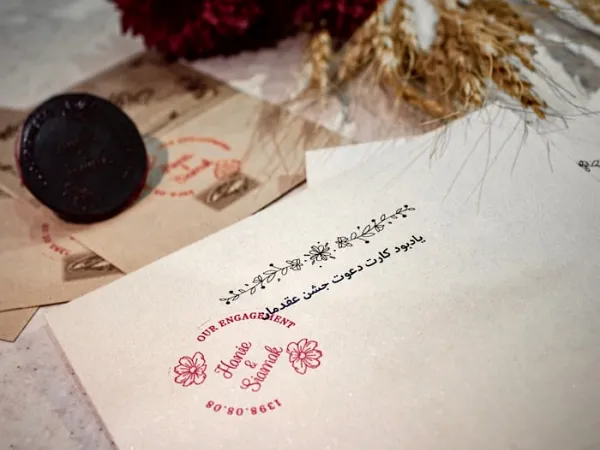 یادبود کارت دعوت جشن عقدمان
OUR ENGAGEMENT
Hanie
&
Siamak
1398.08.08